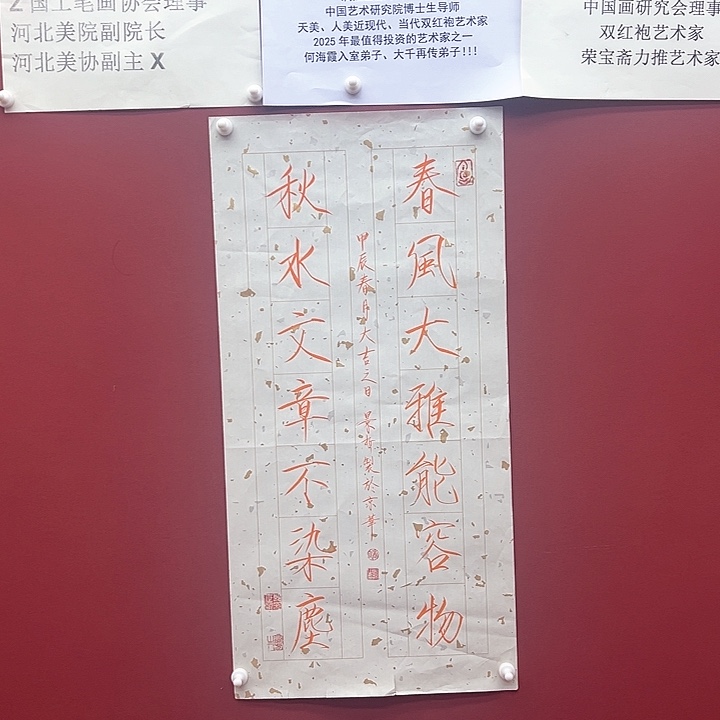 国工笔画协会理事
河北美院副院长
河北美协副主X
中国艺术研究院博士生导师
天美、人美近现代、当代双红袍艺术家
2025年最值得投资的艺术家之一
何海霞入室弟子、大千再传弟子!!!
中国画研究会理事
双红袍艺术家
荣宝斋力推艺术家
春風大雅能容物
秋水文章不染塵
甲辰春月大吉之日 製於京華